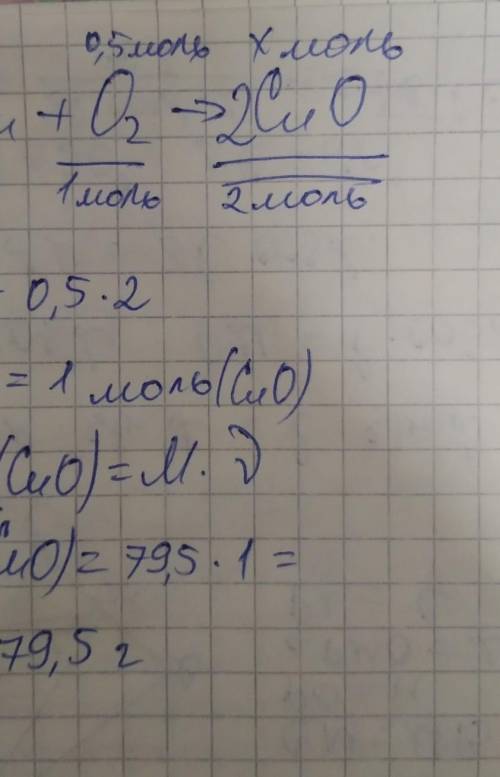 0,5моль х моль
+ O₂ → 2CuO
1моль 2моль
0,5 · 2
= 1 моль(CuO)
(CuO) = M · ν
uO) = 79,5 · 1 =
79,5 г